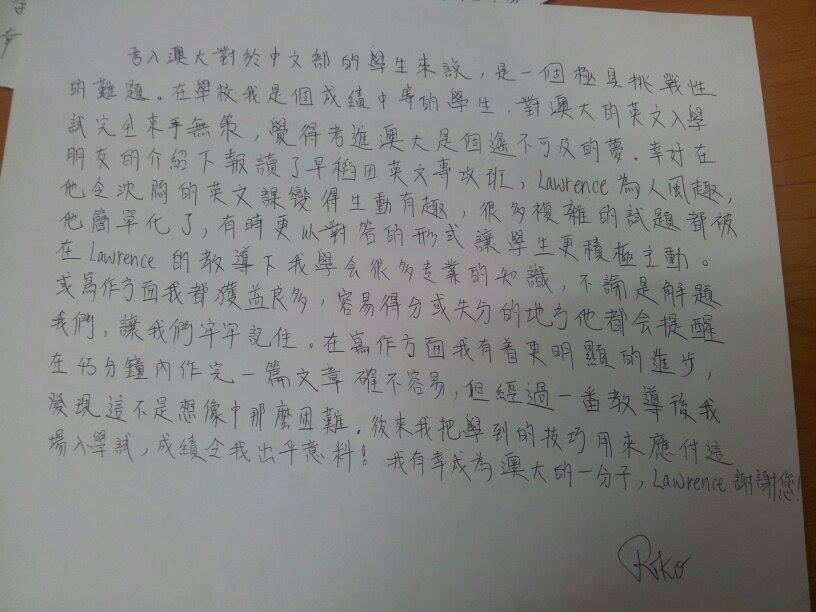 考入澳大對於中文部的學生來說，是一個極具挑戰性
的難題。在學校我是個成績中等的學生，對澳大的英文入學
試完全束手無策，覺得考進澳大是個遙不可及的夢。幸好在
朋友的介紹下報讀了早稻田英文專攻班，Lawrence為人風趣，
他令沈悶的英文課變得生動有趣，很多複雜的試題都被
他簡單化了，有時更以對答的形式讓學生更積極主動。
在Lawrence的教導下我學會很多專業的知識，不論是解題
或寫作方面我都獲益良多，容易得分或失分的地方他都会提醒
我們，讓我們牢牢記住。在寫作方面我有着更明顯的進步，
在45分鐘內作完一篇文章確不容易，但經過一番教導後我
發現這不是想像中那麼困難。後來我把學到的技巧用來應付這
場入學試，成績令我出乎意料！我有幸成為澳大的一分子，Lawrence謝謝您！
Riko